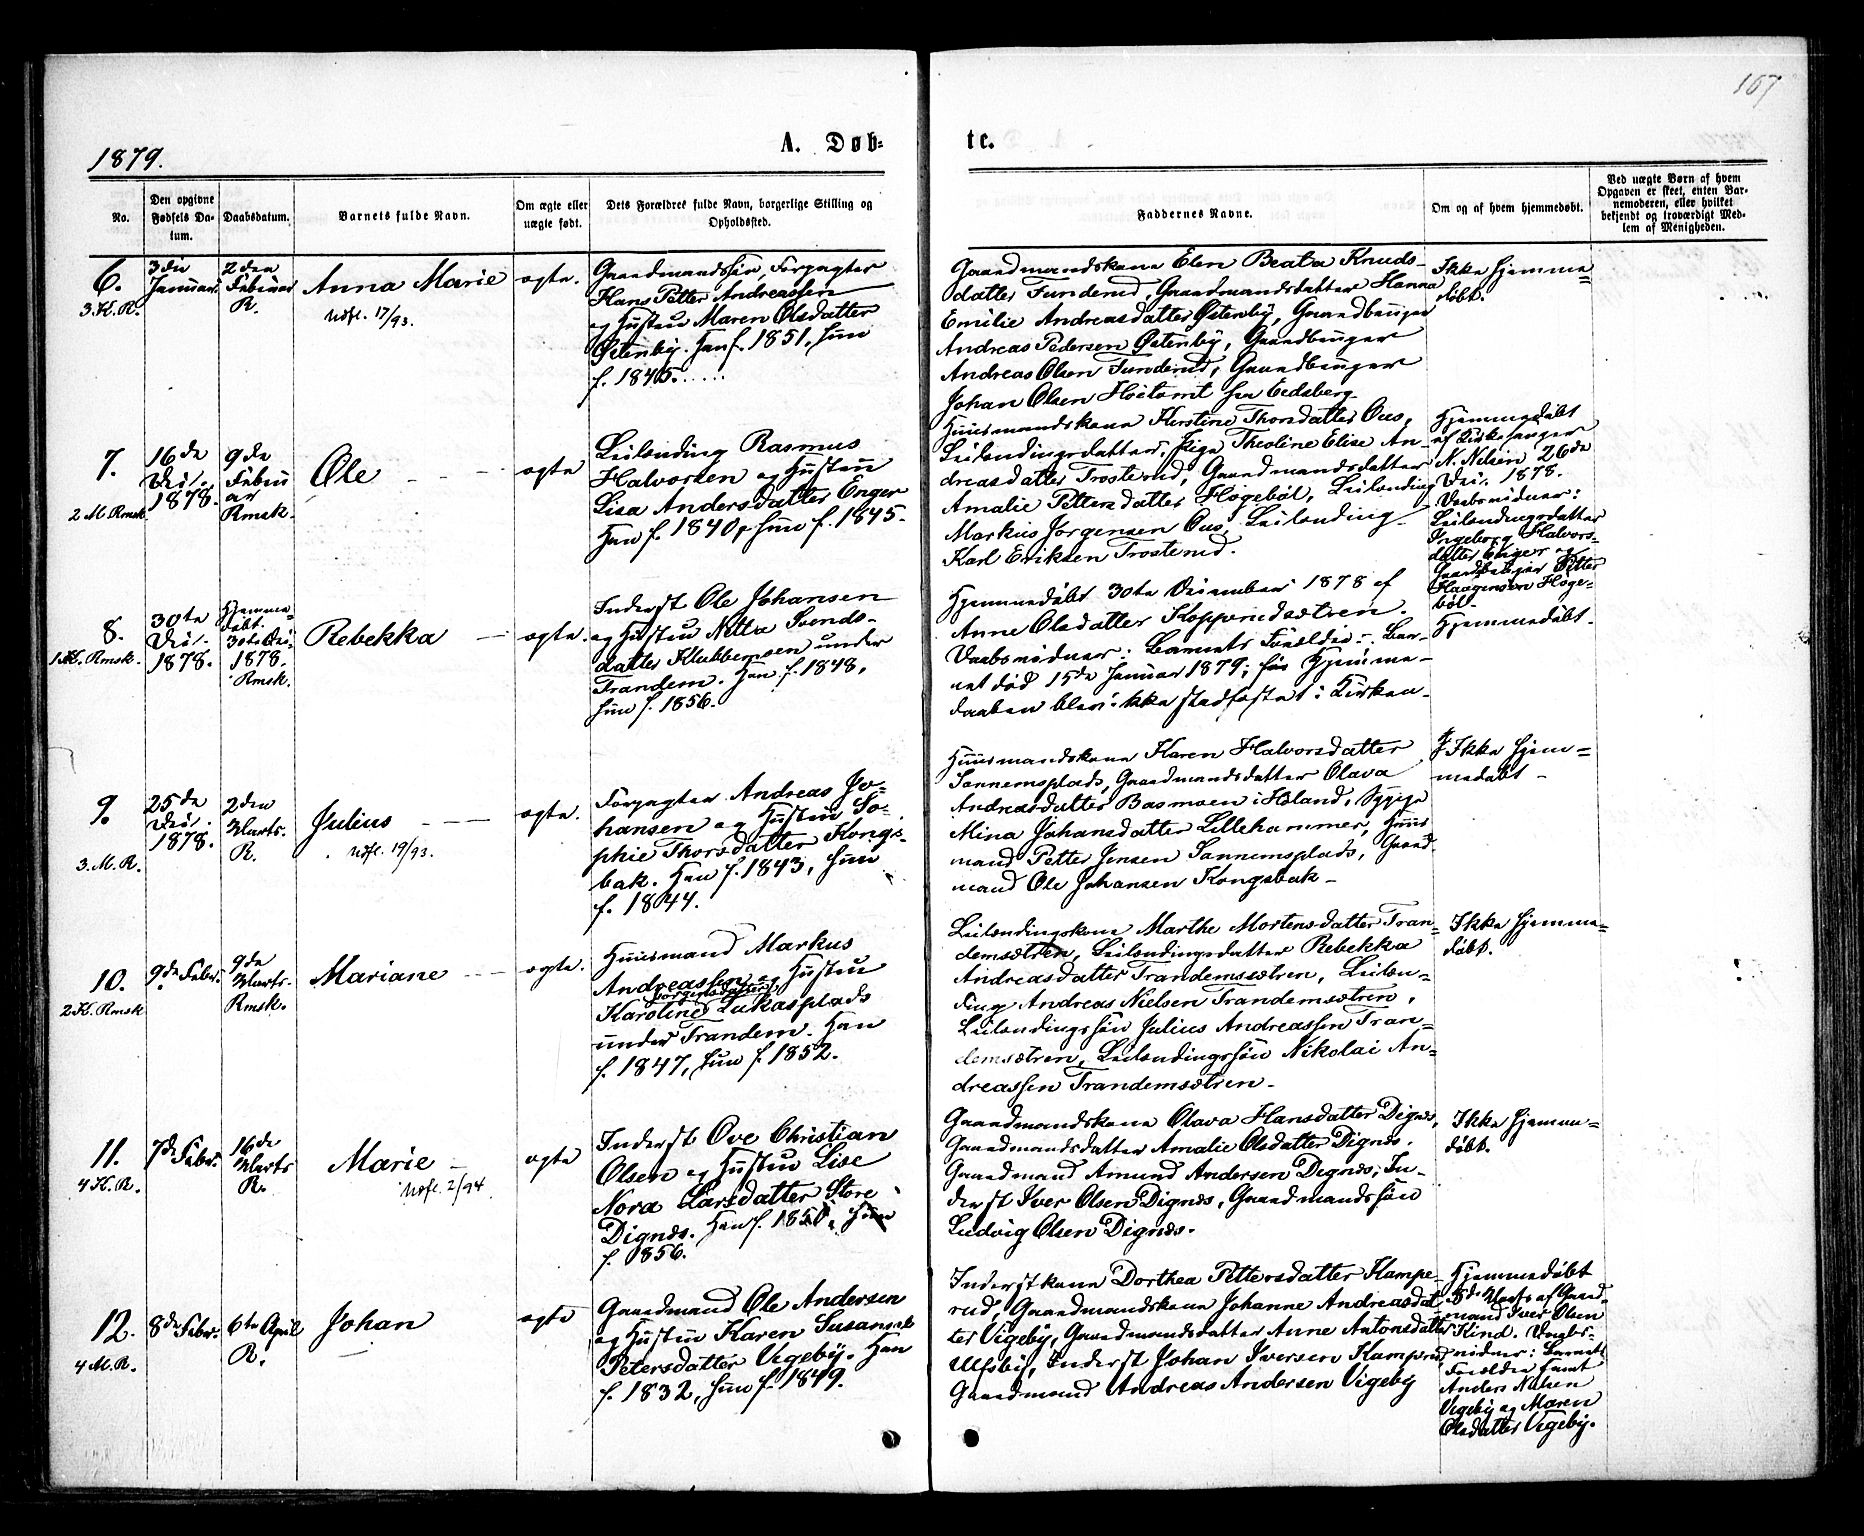 167
1879.
A. Døb-
te.
No.
Den opgivne Fødsels Datum.
Daabsdatum.
Barnets fulde Navn.
Om ægte eller uægte født.
Dets Forældres fulde Navn, borgerlige Stilling og Opholdssted.
Faddernes Navne.
Om og af hvem hjemmedøbt.
Ved uægte Børn af hvem Opgaven er skeet, enten Barnemoderen, eller hvilket bekjendt og troværdigt Medlem af Menigheden.
6.
3.K.R.
3die
Januar
2den
Februar
R.
Anna Marie
Udfl. 17/93.
ægte.
Gaardmandssøn, Forpagter
Hans Petter Andreassen
og Hustru Maren Olsdatter
Østenby. Han f. 1851, hun
f. 1845.
Gaardmandskone Elen Beata Knuds-
datter Funderud, Gaardmandsdatter Hanna
Emilie Andreasdatter Østenby, Gaardbruger
Andreas Pedersen Østenby, Gaardbruger
Andreas Olsen Funderud, Gaardbruger
Johan Olsen Høitomt fra Eidsberg.
Ikke hjemme=
døbt.
7.
2 M. Rmsk.
16de
Dec.
1878.
9de
Febru
ar
Rmsk.
Ole
ægte
Leilænding Rasmus
Halvorsen og Hustru
Lisa Andersdatter Enger
Han f. 1840, Hun f. 1845.
Huusmandskone Kirstine Thorsdatter Ous,
Leilændingsdatter, Pige Theoline Elise An-
dreasdatter Trosterud, Gaardmandsdatter
Amalie Pettersdatter Høgebøl, Leilænding
Markus Jørgensen Ous, Leilænding
Karl Eriksen Trosterud.
Hjemmedøbt
af Kirkesanger
N. Nelsen 26de
Dec. 1878.
Daabsvidner:
Leilændingsdatter
Ingeborg Halvors-
datter Enger og
Gaardbruger Petter
Haagensen Høge-
bøl.
8.
1.K. Rmsk.
30te
Dec.
1878.
Hjemme-
døbt.
30te Dec.
1878.
Rmsk.
Rebekka
ægte.
Inderst Ole Johansen
og Hustru Netta Svends-
datter Klubbemsen under
Trandem. Han f. 1848,
hun f. 1856.
Hjemmedøbt 30te December 1878 af
Anne Olsdatter Kopperudsætren.
Daabsvidner: Barnets Forældre. Bar-
net død 15de Januar 1879; før Hjemme-
daaben blev ikke stadfæstet i Kirken.
Hjemmedøbt.
9.
3. M. R.
25de
Dec.
1878.
2den
Marts.
R.
Julius
Udfl. 19/93.
ægte.
Forpagter Andreas Jo-
hansen og Hustru So-
phie Thorsdatter Kongs-
bak. Han f. 1843, hun
f. 1844.
Huusmandskone Karen Halvorsdatter
Sannemsplads, Gaardmandsdatter Olava
Andreasdatter Basmoen i Høland, Sypige
Mina Johansdatter Lillehammer, Huus
mand Petter Jensen Sannemsplads, Gaard
mand Ole Johansen Kongsbak
Ikke hjem=
medøbt
10.
2 K. Rmsk
9de Febr.
9de
Marts.
Rmsk.
Mariane
ægte.
Huusmand Markus
Andreassen og Hustru
Jørgensdatter
Karoline Lukasplads
under Trandem. Han
f. 1847, hun f. 1852.
Leilændingskone Marthe Mortensdatter Tran-
demsætren, Leilændingsdatter Rebekka
Andreasdatter Trandemsætren, Leilæn-
ding Andreas Nielsen Trandemsætren,
Leilændingssøn Julius Andreassen Tran-
demsætren, Leilændingssøn Nikolai An-
dreassen Trandemsætren.
Ikke hjemme=
døbt.
11.
4 K. R.
7de Febr.
16de
Marts
R.
Marie
Udfl. 2/94.
ægte
Inderst Ove Christian
Olsen og Hustru Lise
Nora Larsdatter Store
Dignes. Han f. 1850, Hun
f. 1856.
Gaardmandskone Olava Hansdatter Dignes,
Gaardmandsdatter Amalie Olsdatter Dignes.
Gaardmand Amund Andersen Dignes, In-
derst Iver Olsen Dignes, Gaardmandssøn
Ludvig Olsen Dignes.
Ikke hjemme=
døbt.
12.
4 M. R.
8de Febr.
6te April
R.
Johan
ægte
Gaardmand Ole Andersen
og Hustru Karen Susanne
Petersdatter Vigeby. Han
f. 1832, hun f. 1849.
Inderstkone Dorthea Pettersdatter Kampe-
rud, Gaardmandskone Johanne Andreasdat
ter Vigeby, Gaardmandsdatter Anne Antonsdatter
Ulfsby, Inderst Johan Iversen Kamperud,
Gaardmand Andreas Andersen Vigeby
Hjemmedøbt
8de Marts af Gaard-
mand Iver Olsen
Kind. Daabs-
vidner: Barnets
Forældre samt
Anders Nilsen
Vigeby og Maren
Olsdatter Vigeby.